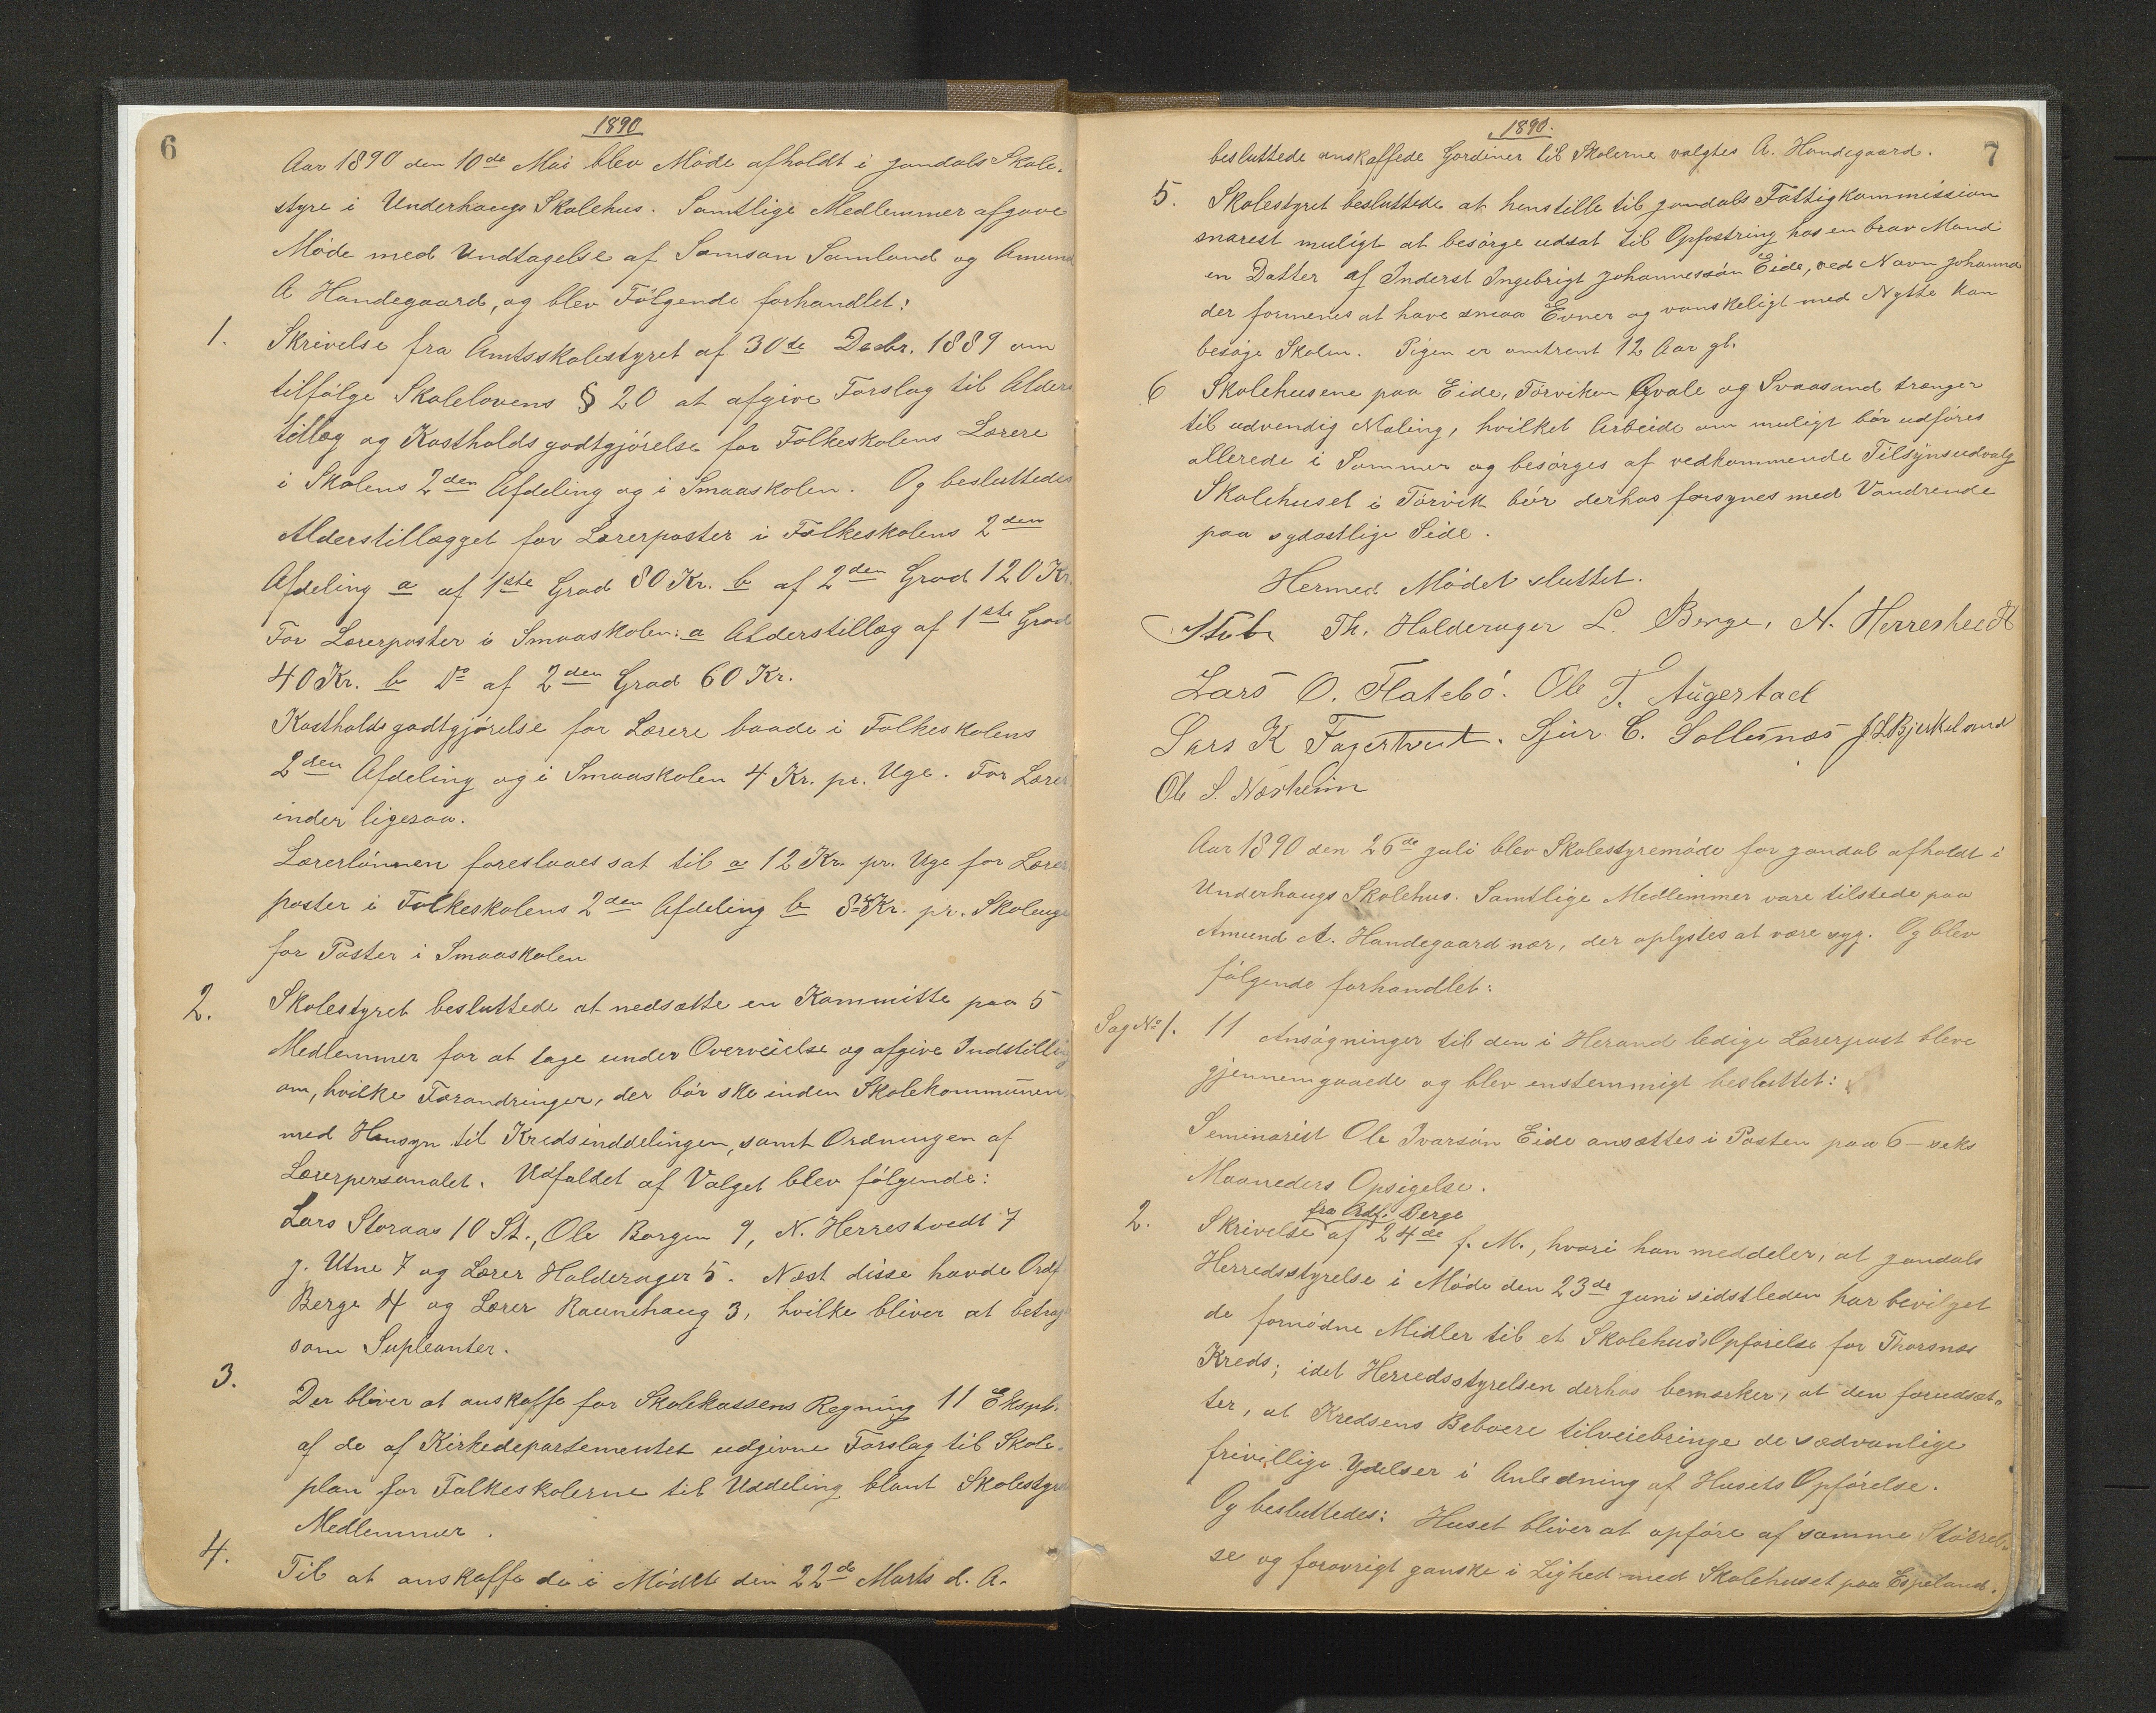 6
1890
Aar 1890 den 10de Mai blev Møde afholdt i Jondals Skole-
styre i Underhaugs Skolehus. Samtlige Medlemmer afgave
Møde med Undtagelse af Samson Samland og Amund
A Handegaard, og blev Følgende forhandlet:
1. Skrivelse fra Amtsskolestyret af 30te Decbr. 1889 om
tilfølge Skolelovens § 20 at afgive Forslag til Alders
tillæg og Kostholdsgodtgjørelse for Folkeskolens Lærere
i Skolens 2den Afdeling og i Smaaskolen. Og besluttedes
Alderstillægget for Lærerposter i Folkeskolens 2den
Afdeling a af 1ste Grad 80 Kr. b af 2den Grad 120 Kr.
For Lærerposter i Smaaskolen: a Alderstillæg af 1ste Grad
40 Kr. b Do af 2den Grad 60 Kr.
Kostholdsgodtgjørelse for Lærere baade i Folkeskolens
2den Afdeling og i Smaaskolen 4 Kr. pr. Uge. For Lærer
inder ligesaa.
Lærerlønnen foreslaaes sat til a 12 Kr. pr. Uge for Lærer
poster i Folkeskolens 2den Afdeling b 8 Kr. pr. Skoleuge
for Poster i Smaaskolen
2. Skolestyret besluttede at nedsætte en Kommitte paa 5
Medlemmer for at tage under Overveielse og afgive Indstilling
om, hvilke Forandringer, der bør ske inden Skolekommunen
med Hensyn til Kredsinddelingen, samt Ordningen af
Lærerpersonalet. Udfaldet af Valget blev følgende:
Lars Storaas 10 St., Ole Borgen 9, N. Herrestvedt 7
J. Utne 7 og Lærer Halderager 5. Næst disse havde Ordf.
Berge 4 og Lærer Raunehaug 3, hvilke bliver at betrag
som Supleanter.
3.
Der bliver at anskaffe for Skolekassens Regning 11 Ekspl.
af de af Kirkedepartementet udgivne Forslag til Skole-
plan for Folkeskolerne til Uddeling blant Skolestyrets
Medlemmer.
4. Til at anskaffe de i Mødet den 22de Marts d. A.
1890.
7
besluttede anskaffede Gardiner til Skolerne valgtes A. Handegaard.
5. Skolestyret besluttede at henstille til Jondals Fattigkommission
snarest muligt at besørge udsat til Opfostring hos en brav Mand
en Datter af Inderst Ingebrigt Johannessøn Eide, ved Navn Johanna
der formenes at have smaa Evner og vanskeligt med Nytte kan
besøge Skolen. Pigen er omtrent 12 Aar gl.
6 Skolehusene paa Eide, Torviken Qvale og Svaasand trænger
til udvendig Maling, hvilket Arbeide om muligt bør udføres
allerede i Sommer og besørges af vedkommende Tilsynsudvalg
Skolehuset i Torvik bør derhos forsynes med Vandrende
paa sydøstlige Side.
Hermed Mødet sluttet.
Stub Th. Halderager L. Berge, N. Herrestvedt
Lars O. Flatebø. Ole T. Augestad
Lars K Fagertveit. Sjur C. Sollesnæs J. L. Bjerkeland
Ole S. Næsheim
Aar 1890 den 26de Juli blev Skolestyremøde for Jondal afholdt i
Underhaugs Skolehus. Samtlige Medlemmer vare tilstede paa
Amund A. Handegaard nær, der oplystes at være syg. Og blev
følgende forhandlet:
Sag No 1. 11 Ansøgninger til den i Herand ledige Lærerpost bleve
gjennemgaaede og blev enstemmigt besluttet:
Seminarist Ole Ivarsøn Eide ansættes i Posten paa 6 - seks
Maaneders Opsigelse.
fra Ordf. Berge
2. Skrivelse af 24de f. M., hvori han meddeler, at Jondals
Herredsstyrelse i Møde den 23de Juni sidstleden har bevilget
de fornødne Midler til et Skolehus's Opførelse for Thorsnæs
Kreds; idet Herredsstyrelsen derhos bemærker, at den forudsæt-
ter, at Kredsens Beboere tilveiebringe de sædvanlige
frivillige Ydelser i Anledning af Husets Opførelse.
Og besluttedes: Huset bliver at opføre af samme Størrel-
se og forøvrigt ganske i Lighed med Skolehuset paa Espeland.